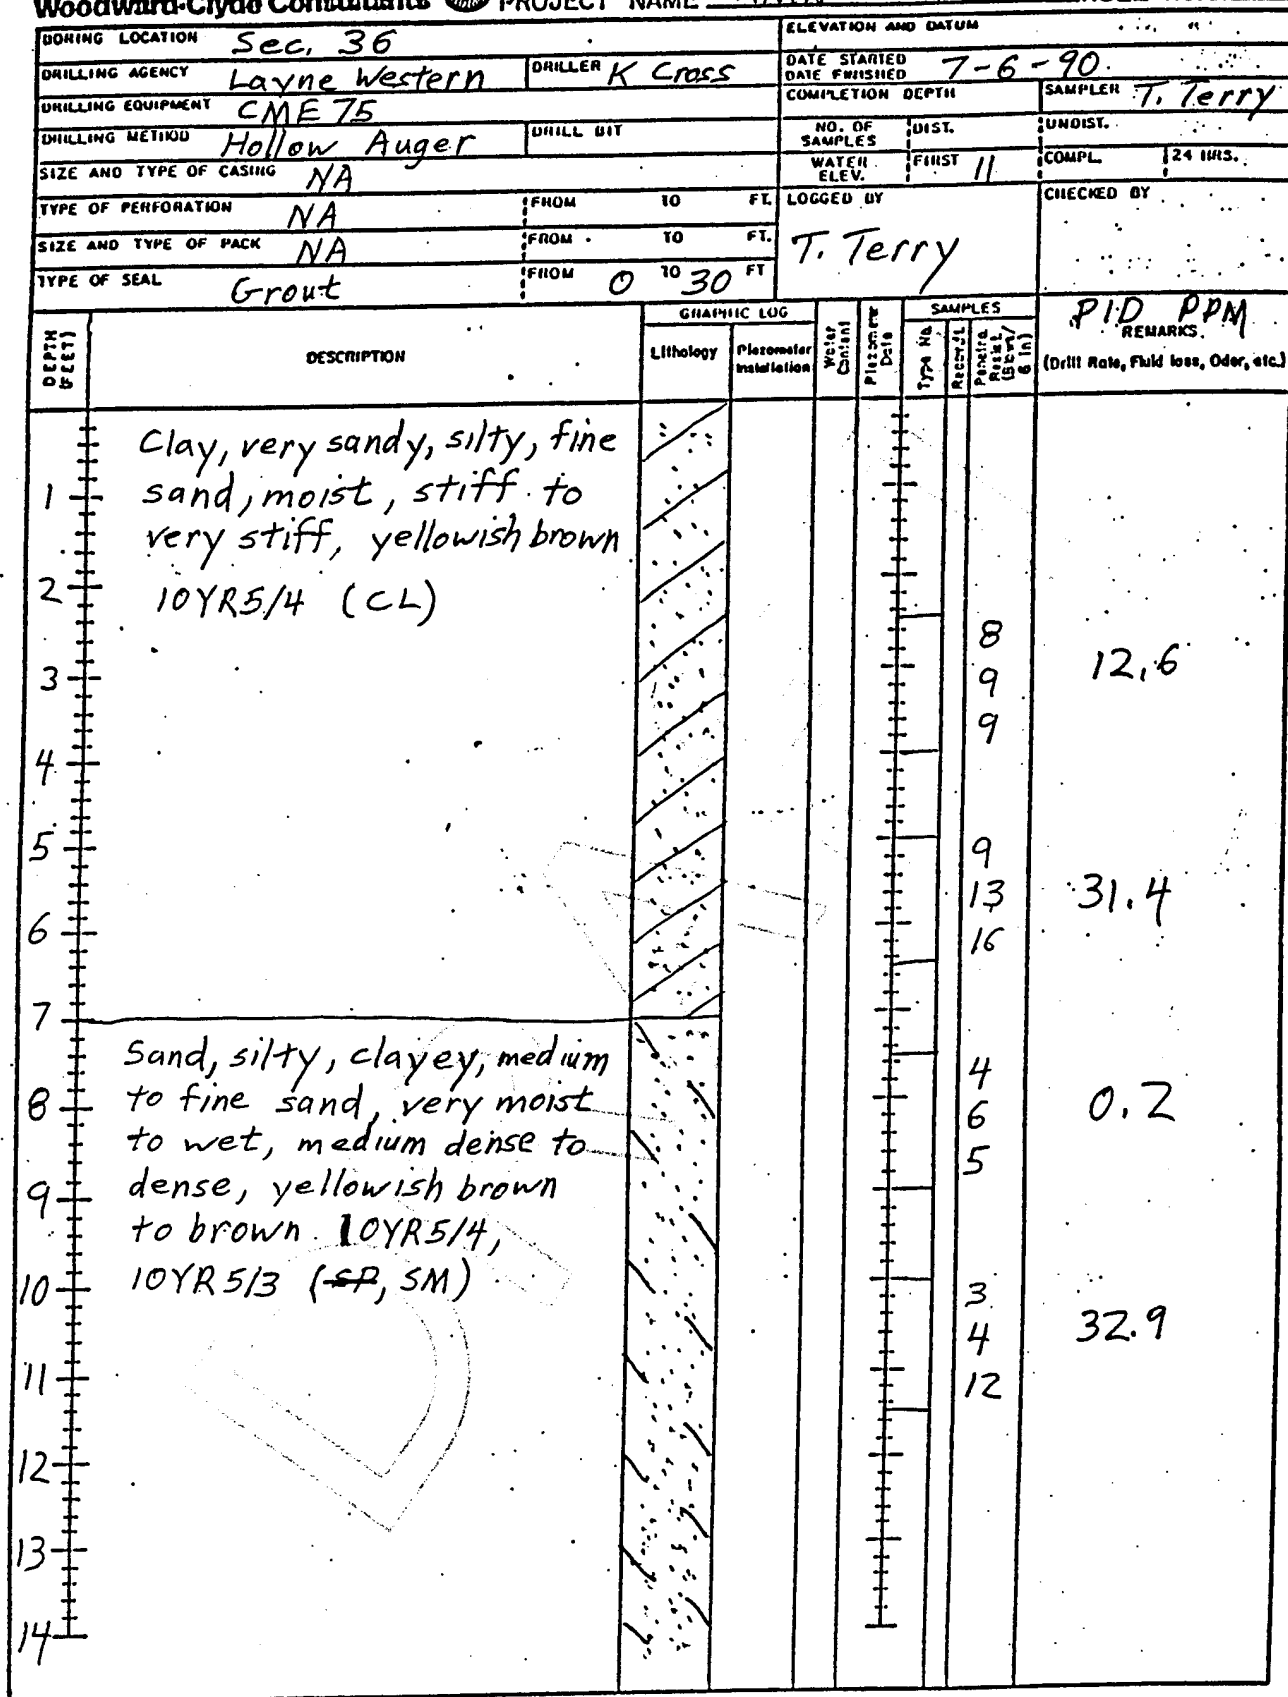 Woodward-Clyde Consultants PROJECT NAME
BORING LOCATION Sec. 36
ELEVATION AND DATUM
DRILLING AGENCY Layne Western
DRILLER K Cross
DATE STARTED
DATE FINISHED 7-6-90
DRILLING EQUIPMENT CME 75
COMPLETION DEPTH
SAMPLER T. Terry
DRILLING METHOD Hollow Auger
DRILL BIT
NO. OF SAMPLES
DIST.
UNDIST.
SIZE AND TYPE OF CASING NA
WATER ELEV.
FIRST 11
COMPL.
24 HRS.
TYPE OF PERFORATION NA
FROM TO FT.
LOGGED BY
CHECKED BY
SIZE AND TYPE OF PACK NA
FROM TO FT.
T. Terry
TYPE OF SEAL Grout
FROM 0 TO 30 FT
DEPTH (FEET)
DESCRIPTION
GRAPHIC LOG
Lithology
Piezometer Installation
Water Content
Piezometer Data
SAMPLES
Type No.
Record.
Penetra. Resist. (Blows/ 6 in)
PID PPM
REMARKS
(Drill Rate, Fluid loss, Odor, etc.)
Clay, very sandy, silty, fine
sand, moist, stiff to
very stiff, yellowish brown
10YR5/4 (CL)
1
2
3
4
5
6
7
8
9
9
12.6
9
13
16
31.4
Sand, silty, clayey, medium
to fine sand, very moist
to wet, medium dense to
dense, yellowish brown
to brown 10YR5/4,
10YR5/3 (SP, SM)
8
9
10
11
12
13
14
4
6
5
0.2
3
4
12
32.9
DRAFT